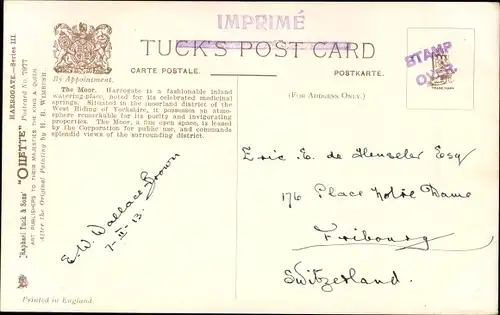 IMPRIMÉ
TUCK'S POST CARD
CARTE POSTALE. POSTKARTE.
STAMP
OVER
By Appointment.
(FOR ADDRESS ONLY.)
The Moor. Harrogate is a fashionable inland
watering-place, noted for its celebrated medicinal
springs. Situated in the moorland district of the
West Riding of Yorkshire, it possesses an atmo-
sphere remarkable for its purity and invigorating
properties. The Moor, a fine open space, is leased
by the Corporation for public use, and commands
splendid views of the surrounding district.
HARROGATE—Series III.
Raphael Tuck & Sons' "OILETTE" Postcard No. 7977
ART PUBLISHERS TO THEIR MAJESTIES THE KING & QUEEN
After the Original Painting by H. B. WIMBUSH.
E. W. Wallace Brown
7-II-13.
Eric E. de Henseler Esq
176 Place Notre Dame
Fribourg
Switzerland.
Printed in England.